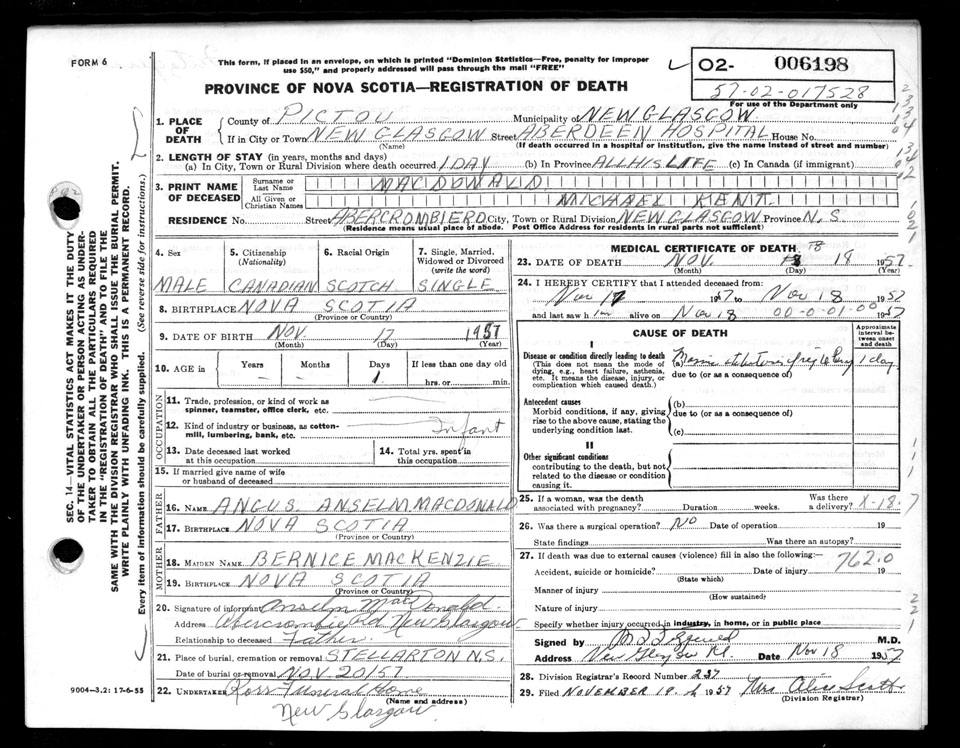 FORM 6
This form, if placed in an envelope, on which is printed "Dominion Statistics—Free, penalty for improper
use $50," and properly addressed will pass through the mail "FREE"
PROVINCE OF NOVA SCOTIA—REGISTRATION OF DEATH
02- 006198
57-02-017528
For use of the Department only
1. PLACE OF DEATH
County of PICTOU Municipality of NEW GLASGOW
If in City or Town NEW GLASGOW Street ABERDEEN HOSPITAL House No.
(Name) (If death occurred in a hospital or institution, give the name instead of street and number)
2. LENGTH OF STAY (in years, months and days)
(a) In City, Town or Rural Division where death occurred 1 DAY (b) In Province ALL HIS LIFE (c) In Canada (if immigrant)
3. PRINT NAME OF DECEASED
Surname or Last Name MACDONALD
All Given or Christian Names MICHAEL KENT
RESIDENCE No. Street ABERCROMBIE RD City, Town or Rural Division NEW GLASGOW Province N.S.
(Residence means usual place of abode. Post Office Address for residents in rural parts not sufficient)
4. Sex MALE
5. Citizenship (Nationality) CANADIAN
6. Racial Origin SCOTCH
7. Single, Married, Widowed or Divorced (write the word) SINGLE
8. BIRTHPLACE NOVA SCOTIA
(Province or Country)
9. DATE OF BIRTH NOV. 17 1957
(Month) (Day) (Year)
10. AGE IN Years – Months – Days 1 If less than one day old
hrs. or min.
OCCUPATION
11. Trade, profession, or kind of work as
spinner, teamster, office clerk, etc.
12. Kind of industry or business, as cotton-
mill, lumbering, bank, etc. Infant
13. Date deceased last worked at this occupation
14. Total yrs. spent in this occupation
15. If married give name of wife
or husband of deceased
FATHER
16. NAME ANGUS ANSELM MACDONALD
17. BIRTHPLACE NOVA SCOTIA
(Province or Country)
MOTHER
18. MAIDEN NAME BERNICE MACKENZIE
19. BIRTHPLACE NOVA SCOTIA
(Province or Country)
20. Signature of informant Anselm MacDonald
Address Abercrombie Rd New Glasgow
Relationship to deceased Father.
21. Place of burial, cremation or removal STELLARTON N.S.
Date of burial or removal NOV. 20/57
22. UNDERTAKER Ross Funeral Home
(Name and address)
New Glasgow
9004-3.2: 17-6-55
SEC. 14—VITAL STATISTICS ACT MAKES IT THE DUTY
OF THE UNDERTAKER OR PERSON ACTING AS UNDER-
TAKER TO OBTAIN ALL THE PARTICULARS REQUIRED
IN THE "REGISTRATION OF DEATH" AND TO FILE THE
SAME WITH THE DIVISION REGISTRAR WHO SHALL ISSUE THE BURIAL PERMIT.
WRITE PLAINLY WITH UNFADING INK. THIS IS A PERMANENT RECORD.
Every item of information should be carefully supplied. (See reverse side for instructions.)
MEDICAL CERTIFICATE OF DEATH
23. DATE OF DEATH NOV. 18 1957
(Month) (Day) (Year)
24. I HEREBY CERTIFY that I attended deceased from:
Nov 17 1957 to Nov 18 1957
and last saw him alive on Nov 18 00-0-01-00 1957
CAUSE OF DEATH
Approximate interval between onset and death
I
Disease or condition directly leading to death
(This does not mean the mode of
dying, e.g., heart failure, asthenia,
etc. It means the disease, injury, or
complication which caused death.)
(a) 1 day
due to (or as a consequence of)
Antecedent causes
Morbid conditions, if any, giving
rise to the above cause, stating the
underlying condition last.
(b)
due to (or as a consequence of)
(c)
II
Other significant conditions
contributing to the death, but not
related to the disease or condition
causing it.
25. If a woman, was the death Was there
associated with pregnancy? Duration weeks. a delivery? X-18-7
26. Was there a surgical operation? NO Date of operation 19
State findings Was there an autopsy?
27. If death was due to external causes (violence) fill in also the following:— 762.0
Accident, suicide or homicide? Date of injury 19
(State which)
Manner of injury
(How sustained)
Nature of injury
Specify whether injury occurred in industry, in home, or in public place
Signed by M.D.
Address New Glasgow Date Nov 18 1957
28. Division Registrar's Record No. 257
29. Filed NOVEMBER 19 1957 Mrs Alice Scott
(Division Registrar)